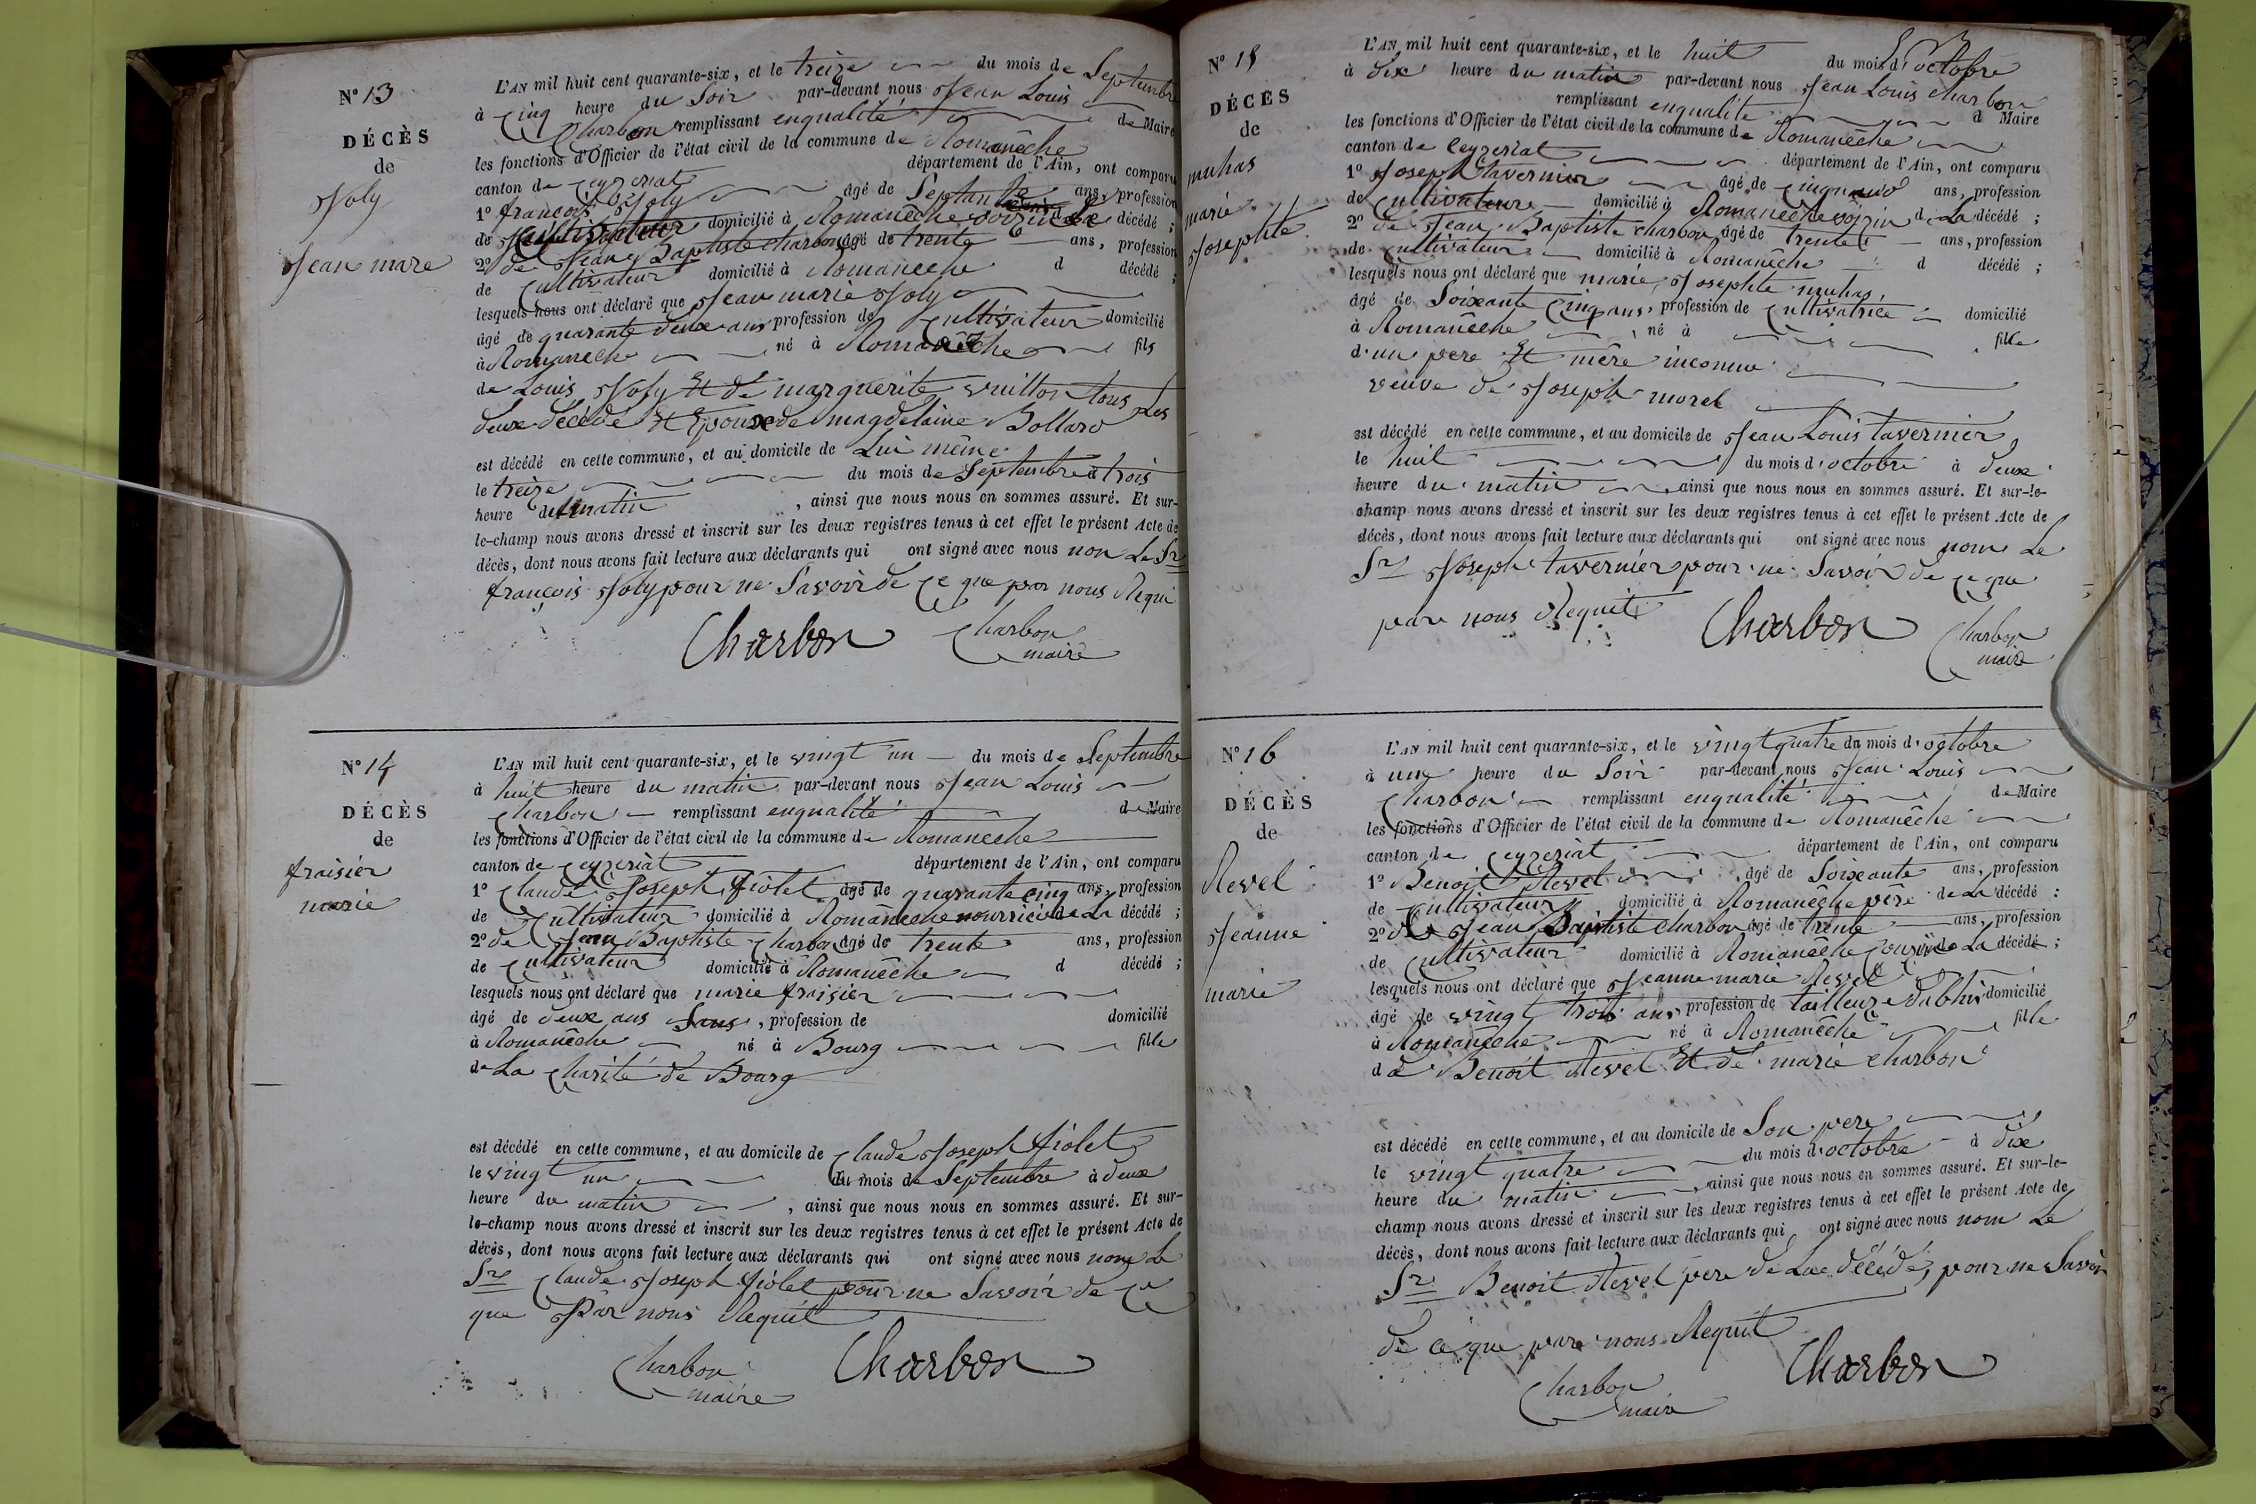 N° 13
DÉCÈS
de
Joly
Jean mare
L'AN mil huit cent quarante-six, et le treize du mois de Septembre
à cinq heure du Soir par-devant nous Jean Louis
Charbon remplissant enqualité de Maire
les fonctions d'Officier de l'état civil de la commune de Romanêche
canton de Ceyzeriat département de l'Ain, ont comparu
1° françois Joly âgé de Septante ans, profession
de Cultivateur domicilié à Romanêche voizin de décédé ;
2° de Jean Baptiste charbon âgé de trente ans, profession
de Cultivateur domicilié à Romanêche d décédé ;
lesquels nous ont déclaré que Jean marie Joly
âgé de quarante deux ans profession de Cultivateur domicilié
à Romanêche né à Romanêche fils
de Louis Joly Et de marguerite vuillot tous Les
deux décédé Et Epoux de magdelaine Bollard
est décédé en cette commune, et au domicile de Lui même
le treize du mois de Septembre à trois
heure du matin , ainsi que nous nous en sommes assuré. Et sur-
le-champ nous avons dressé et inscrit sur les deux registres tenus à cet effet le présent Acte de
décès, dont nous avons fait lecture aux déclarants qui ont signé avec nous non Le Sr
françois Joly pour ne Savoir de ce que par nous Requi
Charbon Charbon
maire
N° 14
DÉCÈS
de
fraisier
marie
L'AN mil huit cent quarante-six, et le vingt un du mois de Septembre
à huit heure du matin par-devant nous Jean Louis
Charbon remplissant enqualité de Maire
les fonctions d'Officier de l'état civil de la commune de Romanêche
canton de Ceyzeriat département de l'Ain, ont comparu
1° Claude Joseph fiolet âgé de quarante cinq ans, profession
de Cultivateur domicilié à Romanêche nourricier de La décédé ;
2° de Jean Baptiste Charbon âgé de trente ans, profession
de Cultivateur domicilié à Romanêche d décédé ;
lesquels nous ont déclaré que marie fraisier
âgé de deux ans Sans , profession de domicilié
à Romanêche né à Bourg fille
de La Charité de Bourg
est décédé en cette commune, et au domicile de Claude Joseph fiolet
le vingt un du mois de Septembre à deux
heure du matin , ainsi que nous nous en sommes assuré. Et sur-
le-champ nous avons dressé et inscrit sur les deux registres tenus à cet effet le présent Acte de
décès, dont nous avons fait lecture aux déclarants qui ont signé avec nous non Le
Sr Claude Joseph fiolet pour ne Savoir de ce
que Par nous Requit
Charbon Charbon
maire
N° 15
DÉCÈS
de
muhas
marie
Josephte
L'AN mil huit cent quarante-six, et le huit du mois d'octobre
à dix heure du matin par-devant nous Jean Louis charbon
remplissant enqualité d Maire
les fonctions d'Officier de l'état civil de la commune de Romanêche
canton de Ceyzeriat département de l'Ain, ont comparu
1° Joseph tavernier âgé de ans, profession
de Cultivateure domicilié à Romanêche voizin de La décédé ;
2° de Jean Baptiste charbon âgé de trente ans, profession
de Cultivateur domicilié à Romanêche d décédé ;
lesquels nous ont déclaré que marie Josephte muhas,
âgé de Soixante Cinq ans, profession de Cultivatrice domicilié
à Romanêche né à fille
d'un pere Et mère inconnu
veuve de Joseph morel
est décédé en cette commune, et au domicile de Jean Louis tavernier
le huit du mois d'octobre à deux
heure du matin ainsi que nous nous en sommes assuré. Et sur-le-
champ nous avons dressé et inscrit sur les deux registres tenus à cet effet le présent Acte de
décès, dont nous avons fait lecture aux déclarants qui ont signé avec nous non Le
Sr Joseph tavernier pour ne Savoir de ce que
par nous Requit Charbon Charbon
maire
N° 16
DÉCÈS
de
Revel
Jeanne
marie
L'AN mil huit cent quarante-six, et le vingt quatre du mois d'octobre
à une heure du Soir par-devant nous Jean Louis
Charbon remplissant enqualité de Maire
les fonctions d'Officier de l'état civil de la commune de Romanêche
canton de Ceyzeriat département de l'Ain, ont comparu
1° Benoit Revel âgé de Soixante ans, profession
de Cultivateur domicilié à Romanêche père de La décédé :
2° de Jean Baptiste charbon âgé de trente ans, profession
de Cultivateur domicilié à Romanêche Cousin de La décédé ;
lesquels nous ont déclaré que Jeanne marie Revel
âgé de vingt trois ans, profession de tailleuze dabhis domicilié
à Romanêche né à Romanêche fille
de Benoit Revel Et de marie Charbon
est décédé en cette commune, et au domicile de Son pere
le vingt quatre du mois d'octobre à dix
heure du matin , ainsi que nous nous en sommes assuré. Et sur-le-
champ nous avons dressé et inscrit sur les deux registres tenus à cet effet le présent Acte de
décès, dont nous avons fait lecture aux déclarants qui ont signé avec nous non Le
Sr Benoit Revel pere de La décédé, pour ne Savoir
de ce que par nous Requit
Charbon Charbon
maire